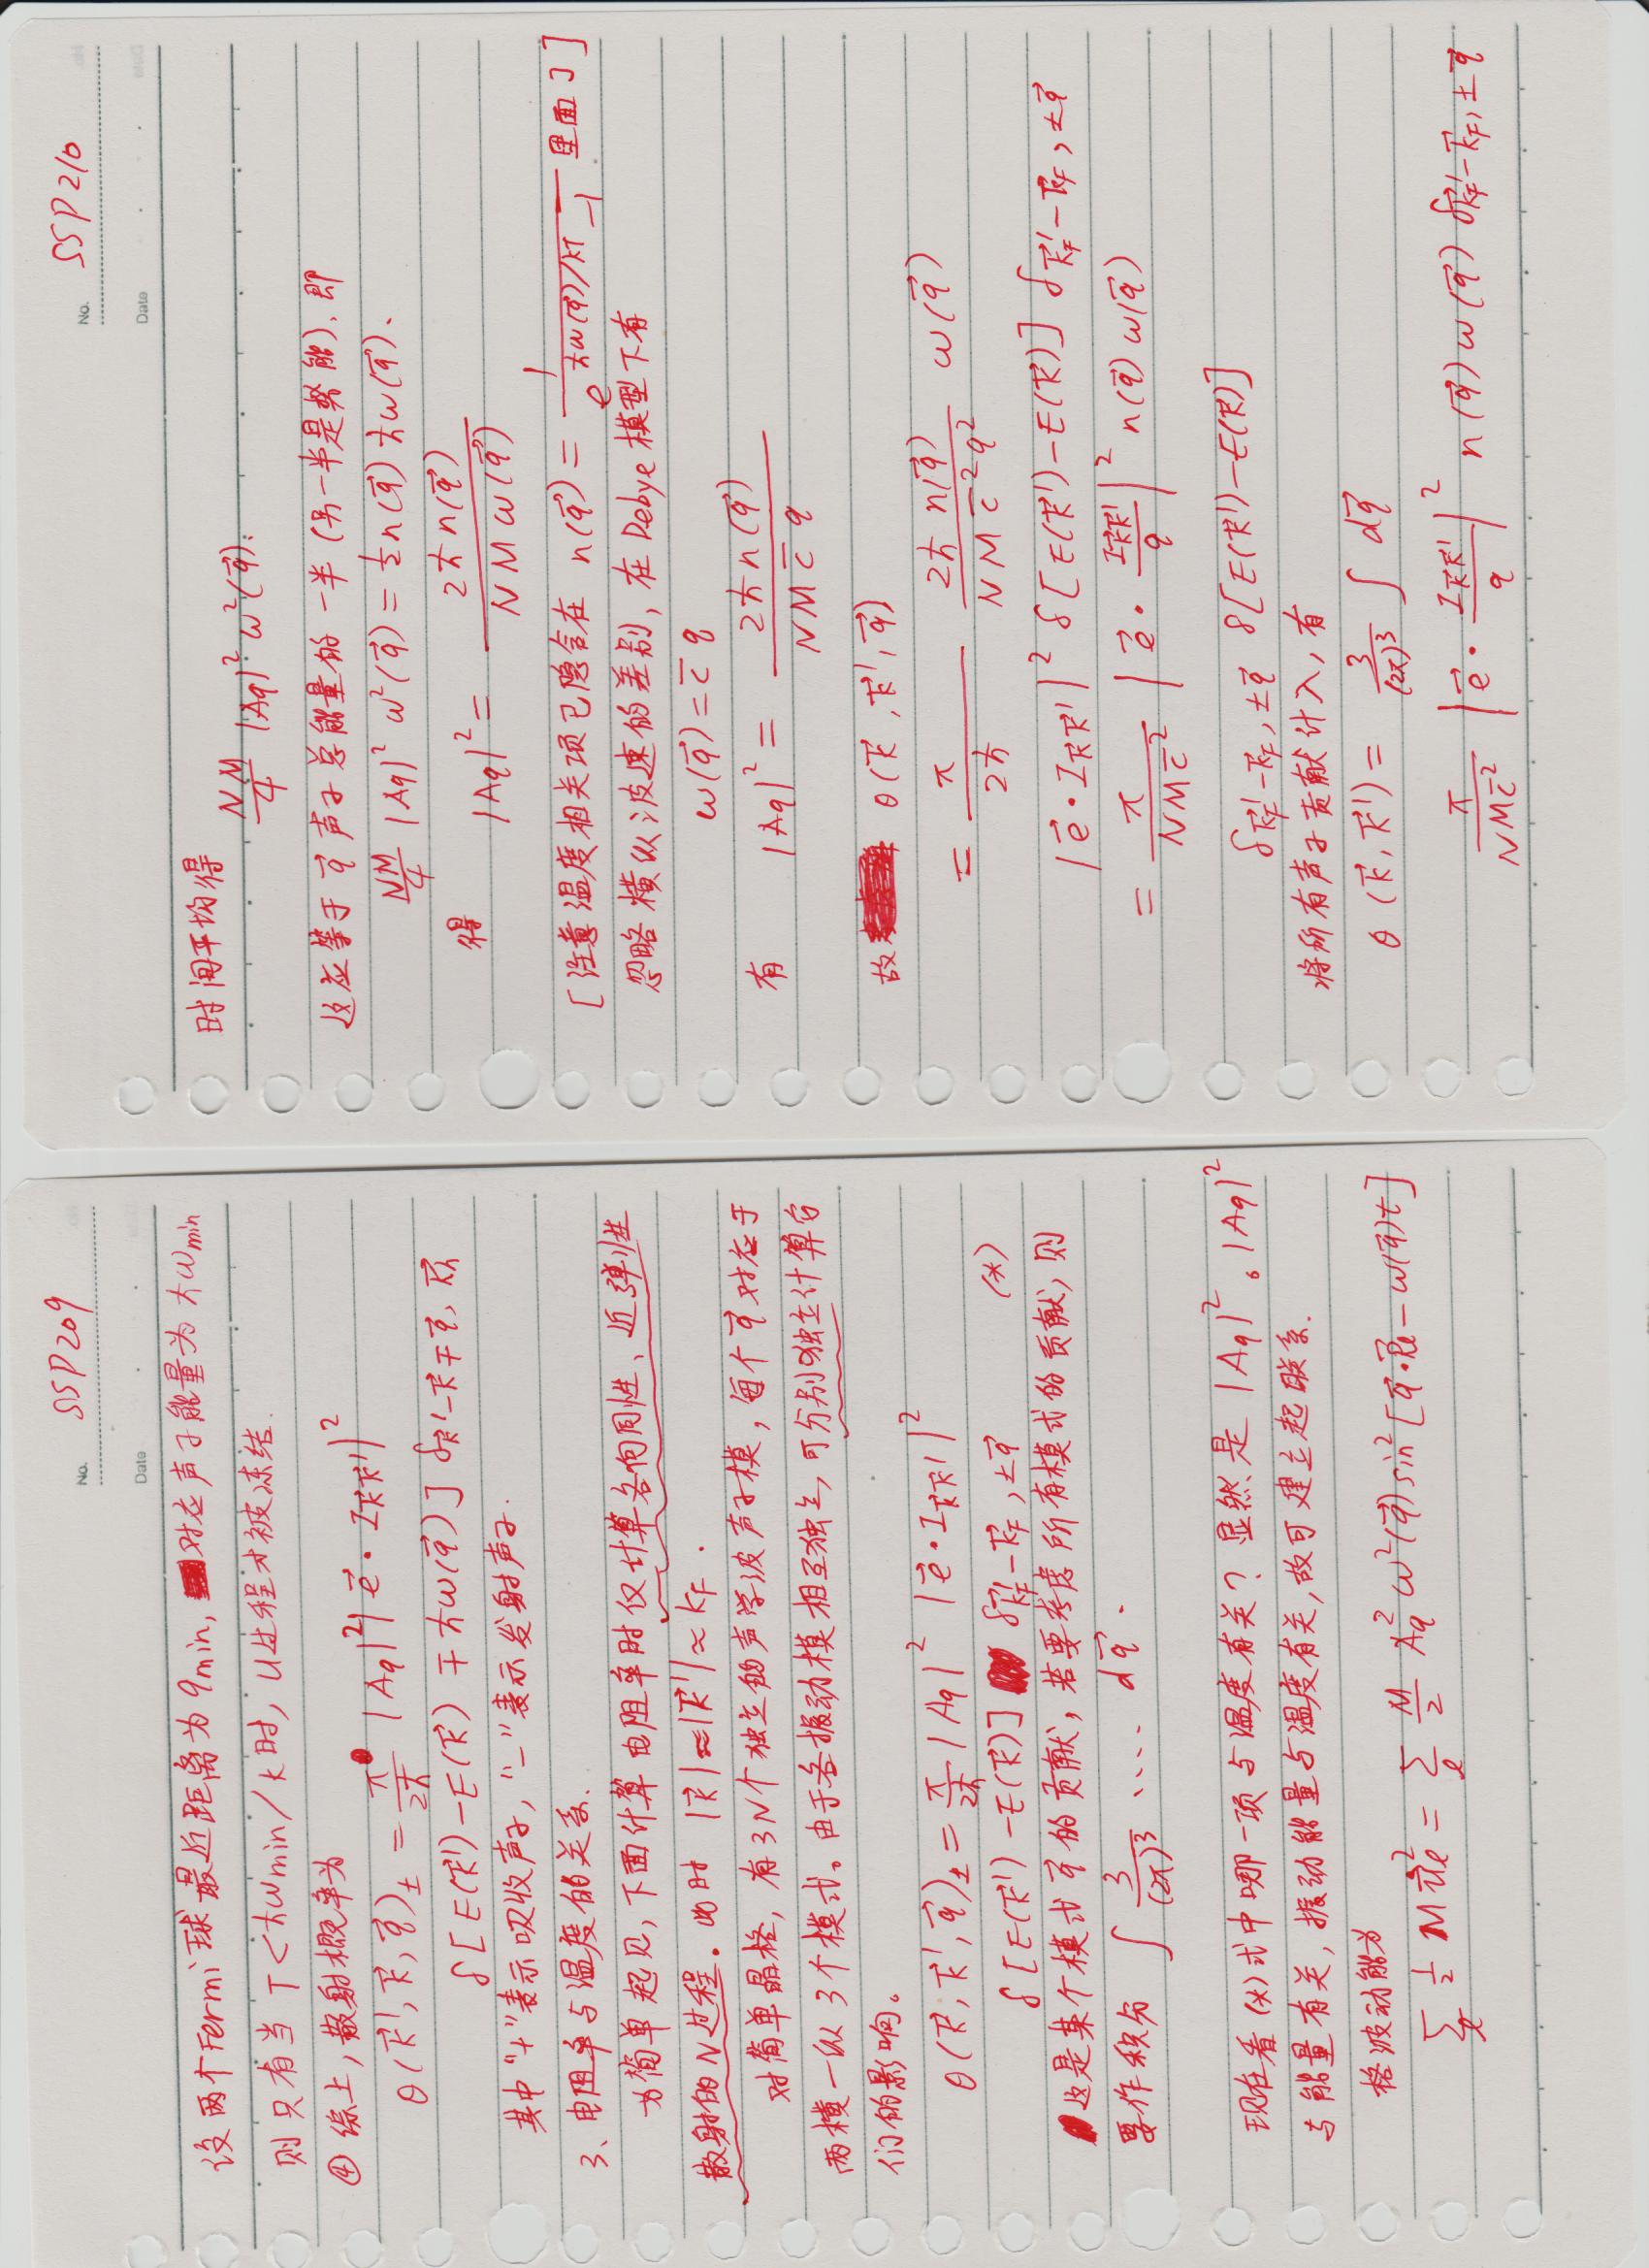 No. SSP209
Date
设两个Fermi球最近距离为 qmin, 对应声子能量为 ħωmin
则只有当 T<ħωmin/k时, U过程才被冻结.
④ 综上, 散射概率为
θ(k⃗', k⃗, q⃗)± = π/2ħ |Aq|²|e⃗·I_k⃗k⃗'|²
δ[E(k⃗')-E(k⃗) ∓ħω(q⃗)] δ_k⃗'-k⃗∓q⃗, K⃗h
其中“+”表示吸收声子, “-”表示发射声子.
3、电阻率与温度的关系.
为简单起见, 下面计算电阻率时仅计算各向同性、近弹性
散射的N过程. 此时 |k⃗|≈|k⃗'|≈kF.
对简单晶格, 有3N个独立的声学波声子模, 每个q⃗对应于
两横一纵3个模式。由于各振动模相互独立, 可分别独立计算它
们的影响。
θ(k⃗, k⃗', q⃗)± = π/2ħ |Aq|² |e⃗·I_k⃗k⃗'|²
δ[E(k⃗')-E(k⃗)] δ_k⃗F'-k⃗F, ±q⃗ (*)
这是某个模式q⃗的贡献, 若要考虑所有模式的贡献, 则
要作积分 ∫ 3/(2π)³ .... dq⃗.
现在看(*)式中哪一项与温度有关? 显然是 |Aq|²。|Aq|²
与能量有关, 振动能量与温度有关, 故可建立起联系.
格波动能为
Σ_l 1/2 M u̇⃗_l² = Σ_l M/2 Aq² ω²(q⃗) sin²[q⃗·R⃗l-ω(q⃗)t]
No. SSP210
Date
时间平均得
NM/4 |Aq|² ω²(q⃗).
这应等于q⃗声子总能量的一半(另一半是势能), 即
NM/4 |Aq|² ω²(q⃗) = 1/2 n(q⃗) ħω(q⃗).
得 |Aq|² = 2ħn(q⃗)/NMω(q⃗)
[注意温度相关项已隐含在 n(q⃗) = 1/(e^ħω(q⃗)/kT -1) 里面了]
忽略横纵波速的差别, 在Debye模型下有
ω(q⃗) = c̄ q
有 |Aq|² = 2ħn(q⃗)/NM c̄ q
故 θ(k⃗, k⃗', q⃗)
= π/2ħ 2ħ n(q⃗)/NM c̄²q² ω(q⃗)
|e⃗·I_k⃗k⃗'|² δ[E(k⃗')-E(k⃗)] δ_k⃗F'-k⃗F, ±q⃗
= π/NM c̄² |e⃗· I_k⃗k⃗'/q|² n(q⃗) ω(q⃗)
δ_k⃗F'-k⃗F, ±q⃗ δ[E(k⃗')-E(k⃗)]
将所有声子贡献计入, 有
θ(k⃗, k⃗') = 3/(2π)³ ∫ dq⃗
π/NM c̄² |e⃗· I_k⃗k⃗'/q|² n(q⃗) ω(q⃗) δ_k⃗F'-k⃗F, ±q⃗